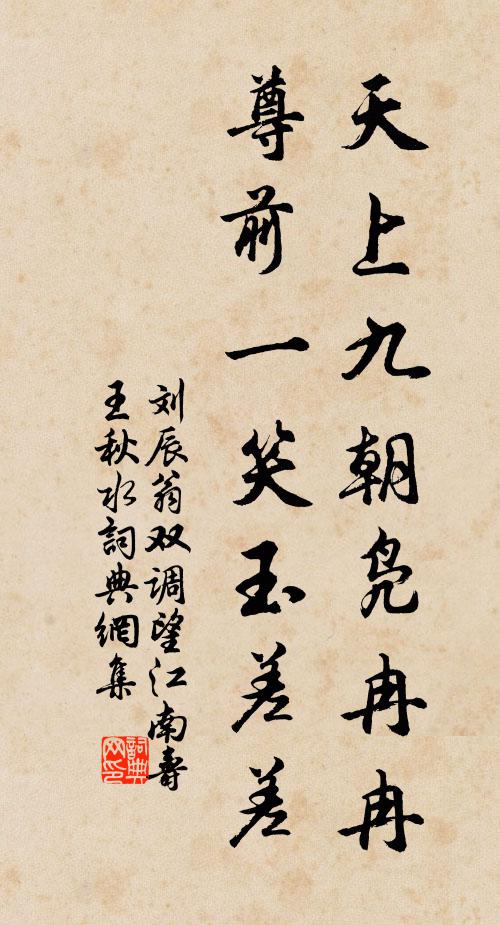 天上九朝凫冉冉
尊前一笑玉差差
刘辰翁双调望江南寿
王秋水詞典網集
詞典网印